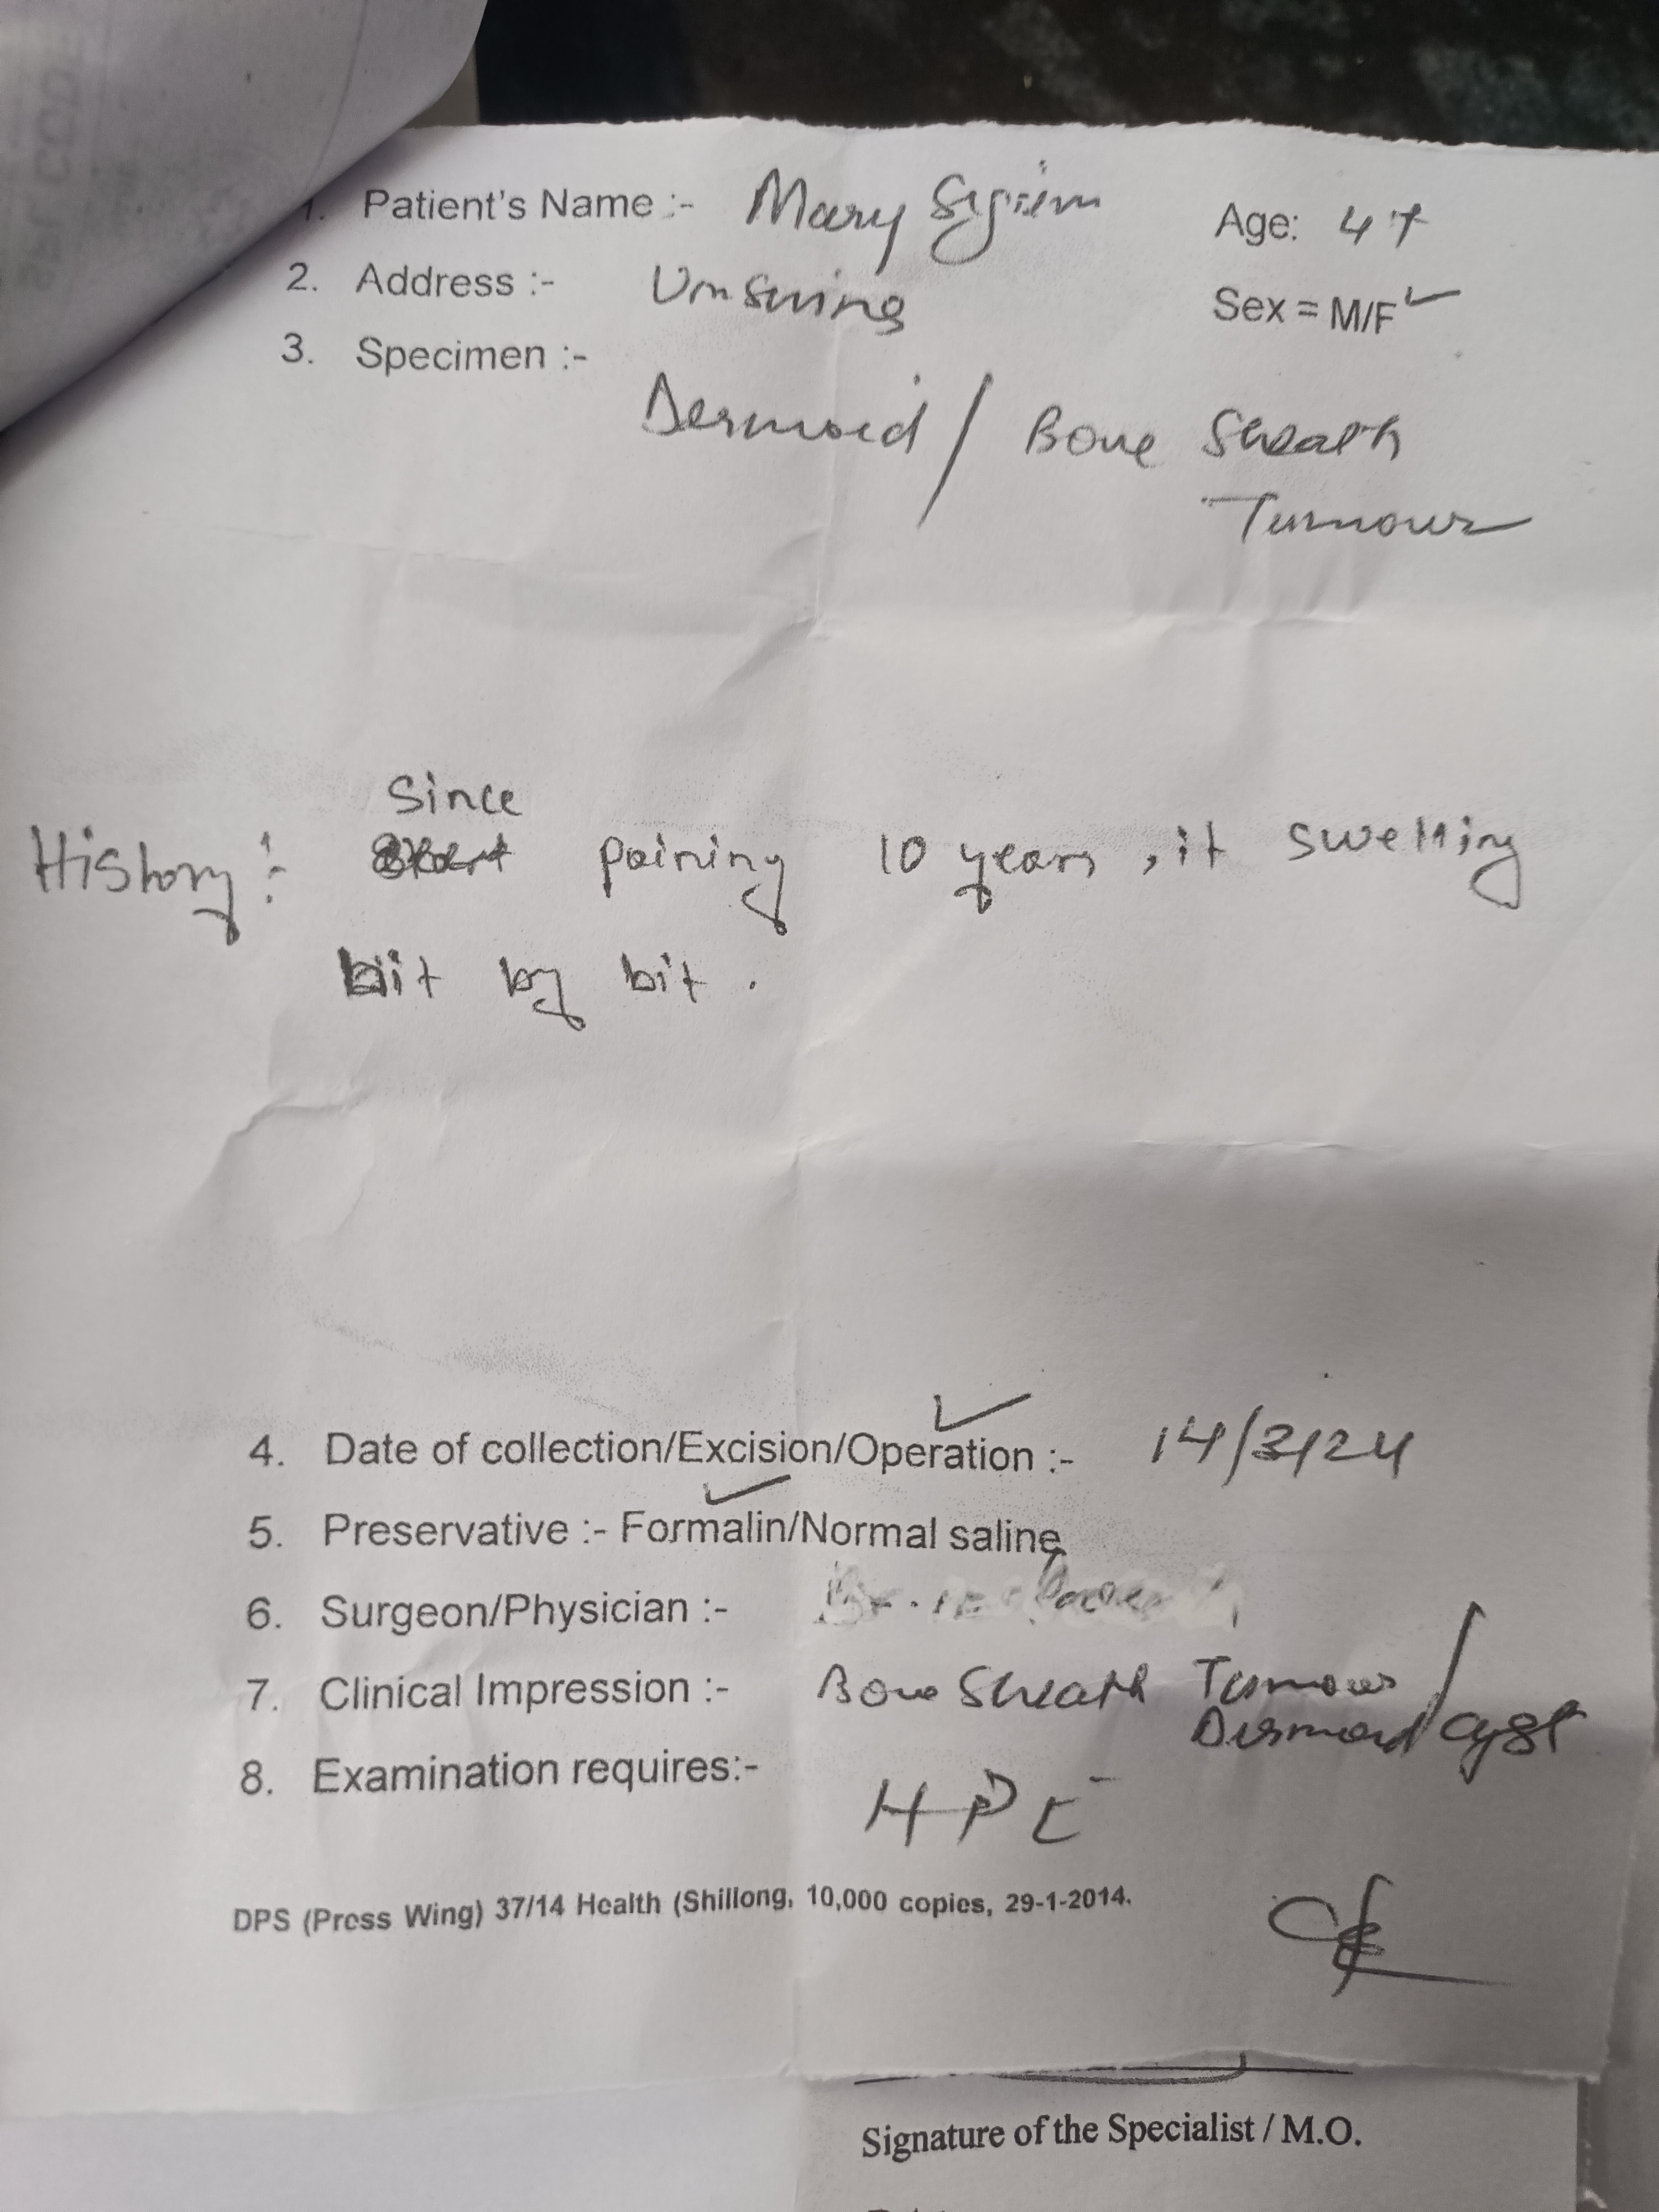 1. Patient's Name :- Mary Syiem Age: 47
2. Address :- Umsning Sex = M/F ✓
3. Specimen :-
Dermoid / Bone Sheath
Tumour
Since
History :- paining 10 years, it swelling
bit by bit.
4. Date of collection/Excision/Operation :- 14/3/24
5. Preservative :- Formalin/Normal saline
6. Surgeon/Physician :-
7. Clinical Impression :- Bone Sheath Tumour /
Dermoid cyst
8. Examination requires:-
HPE
DPS (Press Wing) 37/14 Health (Shillong, 10,000 copies, 29-1-2014.
Signature of the Specialist / M.O.